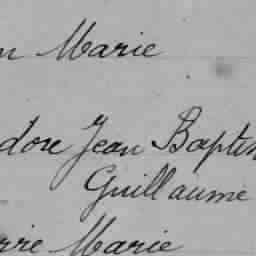 n Marie
dore Jean Baptis
Guillaume
rre Marie